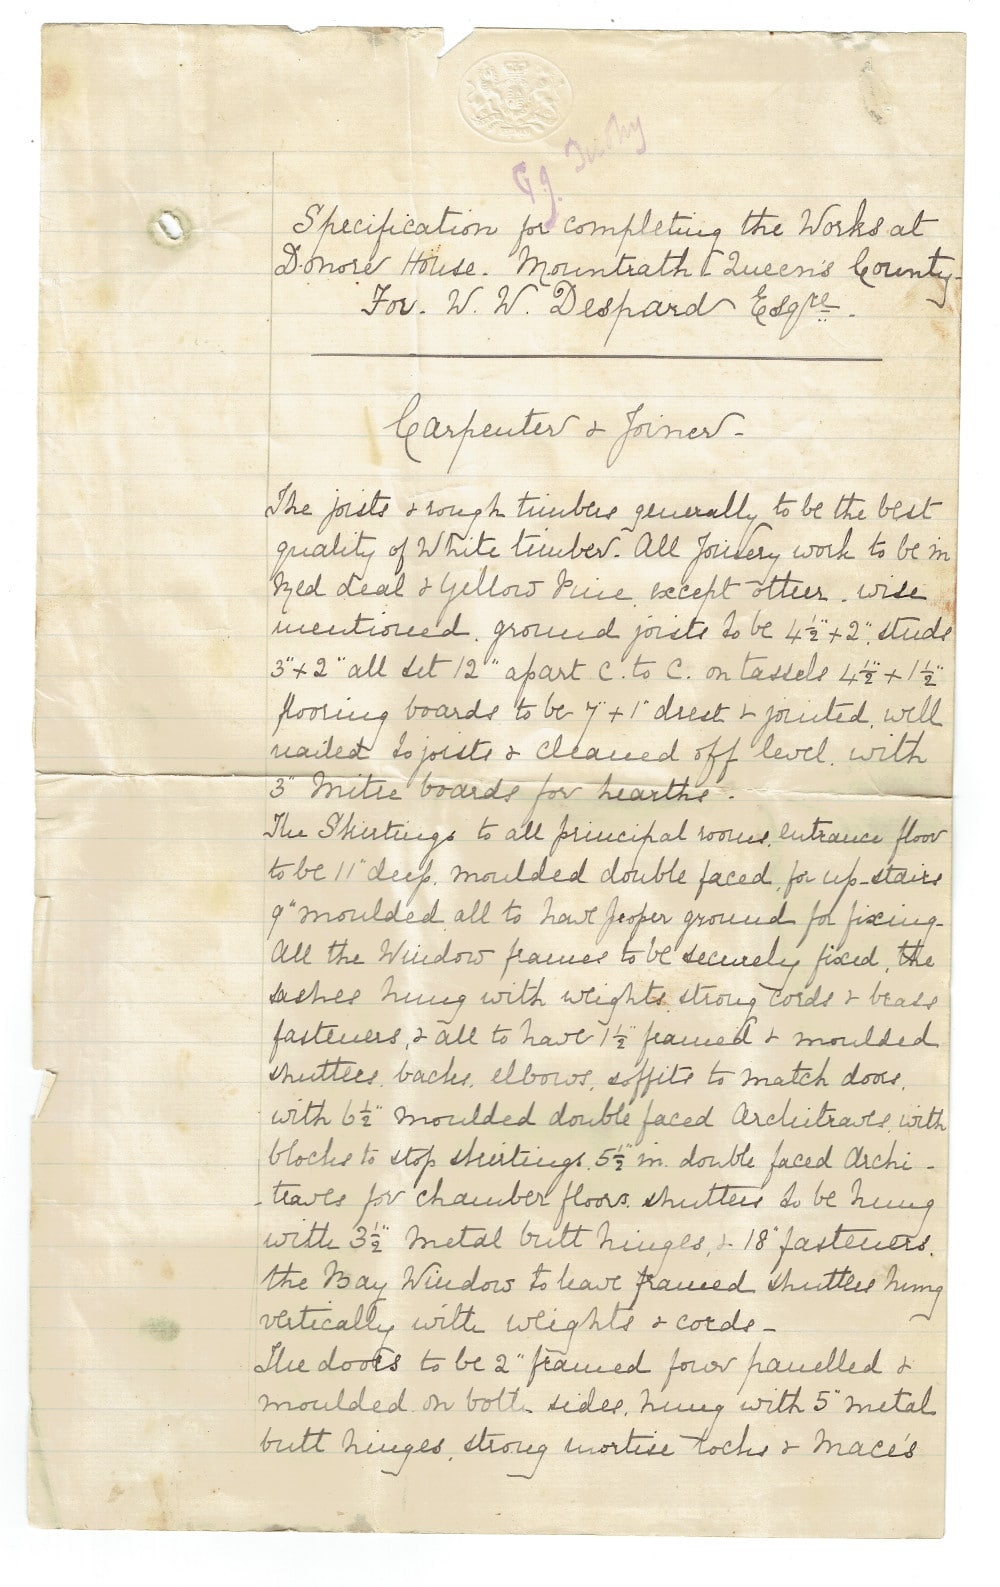 Specification for completing the Works at
Donore House. Mountrath Queen's County-
For. W. W. Despard Esqre.
Carpenter & Joiner-
The joists & rough timbers generally to be the best
quality of White timber. All Joinery work to be in
Red deal & Yellow Pine, except other . wise
mentioned. ground joists to be 4½"+2", studs
3"+2" all set 12" apart C. to C. on tassels 4½"+1½"
flooring boards to be 7"+1" drest & jointed, well
nailed to joists & cleaned off level. with
3" Mitre boards for hearths.
The Skirtings to all principal rooms, entrance floor
to be 11" deep, moulded double faced, for up-stairs
9" moulded, all to have proper ground for fixing-
All the Window frames to be securely fixed, the
sashes hung with weights, strong cords & brass
fasteners, & all to have 1½" framed & moulded
shutters, backs, elbows, soffits to match doors,
with 6½" moulded double faced Architraves, with
blocks to stop skirtings, 5½" in double faced Archi-
-traves for chamber floors. shutters to be hung
with 3½" Metal butt hinges, & 18" fasteners.
the Bay Window to have framed shutters hung
vertically with weights & cords-
The doors to be 2" framed four panelled &
moulded on both sides, hung with 5" metal
butt hinges, strong mortise locks & Mace's